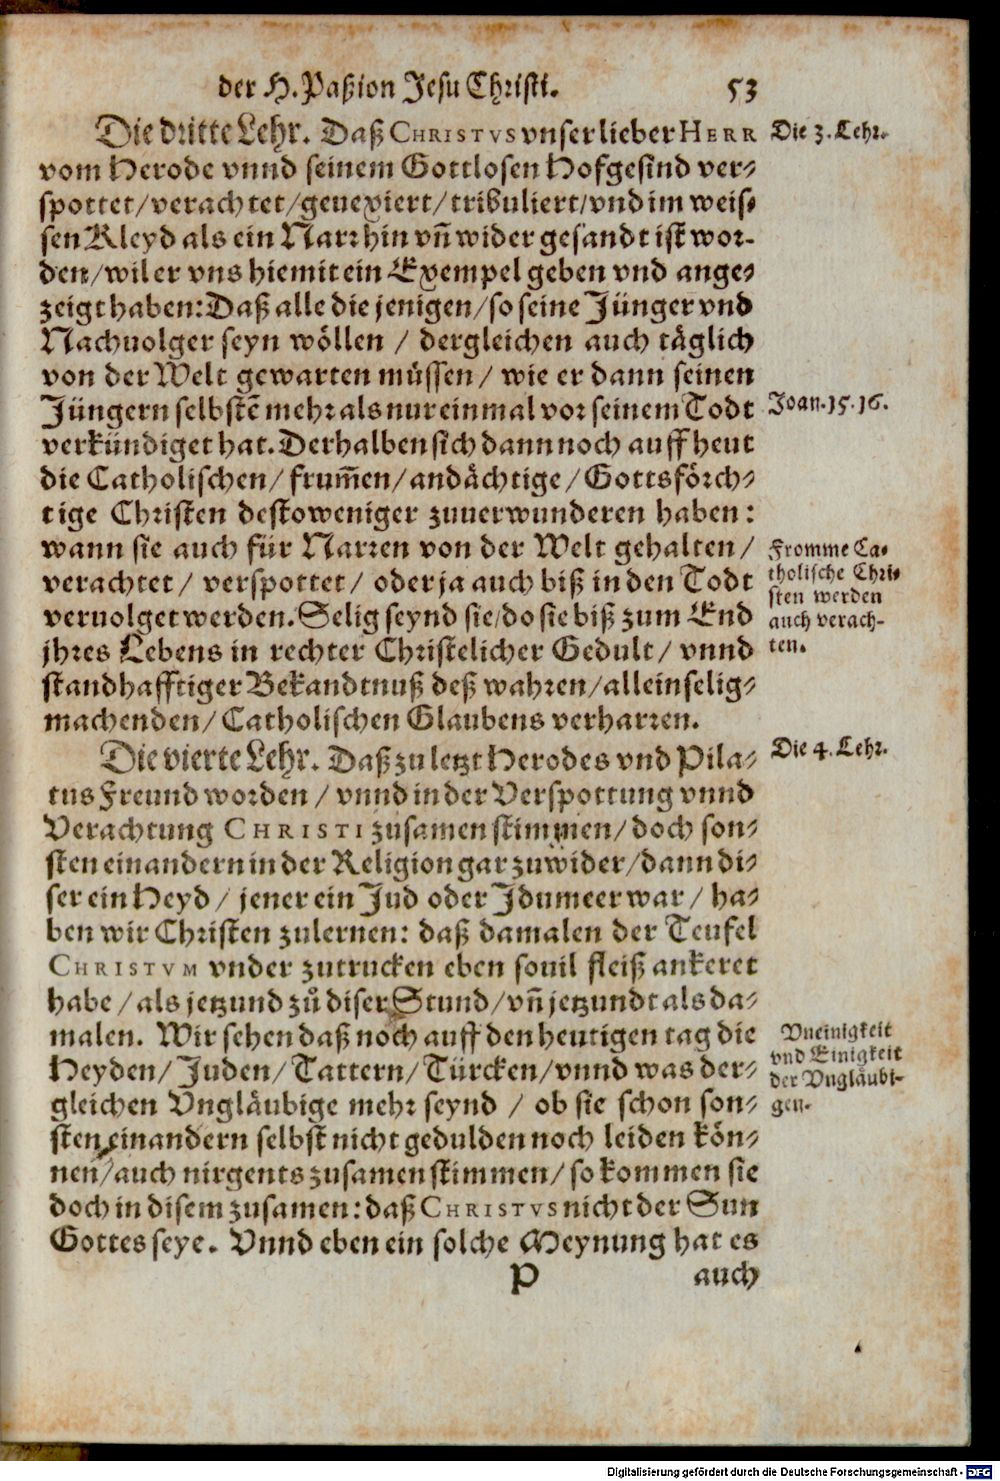 der H. Paßion Jesu Christi. 53
Die dritte Lehr. Daß CHRISTVS vnser lieber HERR
Die 3. Lehr.
vom Herode vnnd seinem Gottlosen Hofgesind ver-
spottet/verachtet/geuexiert/tribuliert/vnd im weis-
sen Kleyd als ein Narr hin vñ wider gesandt ist wor-
den/wil er vns hiemit ein Exempel geben vnd ange-
zeigt haben: Daß alle die jenigen/so seine Jünger vnd
Nachuolger seyn wöllen / dergleichen auch täglich
von der Welt gewarten müssen/ wie er dann seinen
Jüngern selbstẽ mehr als nur einmal vor seinem Todt
Joan. 15. 16.
verkündiget hat. Derhalben sich dann noch auff heut
die Catholischen/ frum̃en/andächtige/Gottsförch-
tige Christen destoweniger zuuerwunderen haben:
wann sie auch für Narren von der Welt gehalten/
verachtet/ verspottet/ oder ja auch biß in den Todt
veruolget werden. Selig seynd sie/do sie biß zum End
jhres Lebens in rechter Christelicher Gedult/ vnnd
standhafftiger Bekandtnuß deß wahren/alleinselig-
machenden/Catholischen Glaubens verharren.
Fromme Ca-
tholische Chri-
sten werden
auch verach-
ten.
Die vierte Lehr. Daß zu letzt Herodes vnd Pila-
Die 4. Lehr.
tus Freund worden / vnnd in der Verspottung vnnd
Verachtung CHRISTI zusamen stimmen/doch son-
sten einandern in der Religion gar zuwider/dann di-
ser ein Heyd / jener ein Jud oder Jdumeer war / ha-
ben wir Christen zulernen: daß damalen der Teufel
CHRISTVM vnder zutrucken eben souil fleiß ankeret
habe / als jetzund zů diser Stund/vñ jetzundt als da-
malen. Wir sehen daß noch auff den heutigen tag die
Heyden/ Juden/Tattern/Türcken/vnnd was der-
gleichen Vngläubige mehr seynd / ob sie schon son-
sten einandern selbst nicht gedulden noch leiden kön-
nen/auch nirgents zusamen stimmen/so kommen sie
doch in disem zusamen: daß CHRISTVS nicht der Sun
Gottes seye. Vnnd eben ein solche Meynung hat es
Vneinigkeit
vnd Einigkeit
der Vngläubi-
gen.
P auch
Digitalisierung gefördert durch die Deutsche Forschungsgemeinschaft - DFG